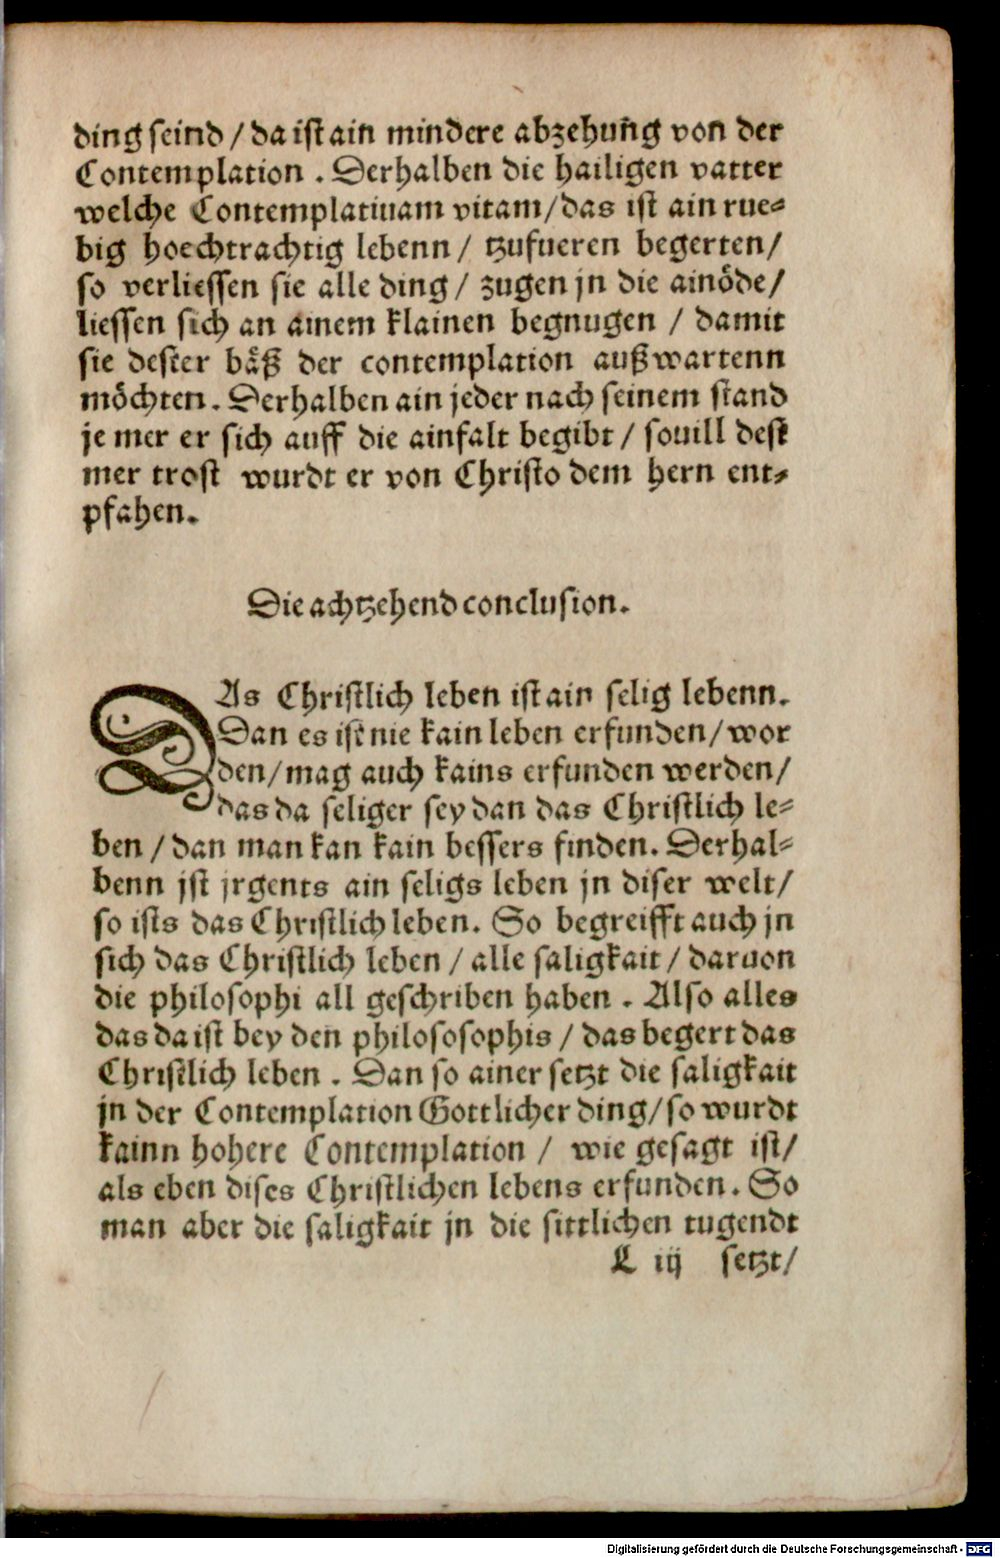 ding seind / da ist ain mindere abzehun̄g von der
Contemplation . Derhalben die hailigen vatter
welche Contemplatiuam vitam/das ist ain rue⸗
big hoechtrachtig lebenn / tzufueren begerten/
so verliessen sie alle ding / zugen jn die ainöde/
liessen sich an ainem klainen begnugen / damit
sie dester bäß der contemplation außwartenn
möchten. Derhalben ain jeder nach seinem stand
je mer er sich auff die ainfalt begibt / souill dest
mer trost wurdt er von Christo dem hern ent⸗
pfahen.
Die achtzehend conclusion.
DAs Christlich leben ist ain selig lebenn.
Dan es ist nie kain leben erfunden/wor
den/mag auch kains erfunden werden/
das da seliger sey dan das Christlich le⸗
ben / dan man kan kain bessers finden. Derhal⸗
benn jst jrgents ain seligs leben jn diser welt/
so ists das Christlich leben. So begreifft auch jn
sich das Christlich leben / alle saligkait / daruon
die philosophi all geschriben haben . Also alles
das da ist bey den philososophis / das begert das
Christlich leben . Dan so ainer setzt die saligkait
jn der Contemplation Gottlicher ding/so wurdt
kainn hohere Contemplation / wie gesagt ist/
als eben dises Christlichen lebens erfunden. So
man aber die saligkait jn die sittlichen tugendt
L iij setzt/
Digitalisierung gefördert durch die Deutsche Forschungsgemeinschaft - DFG